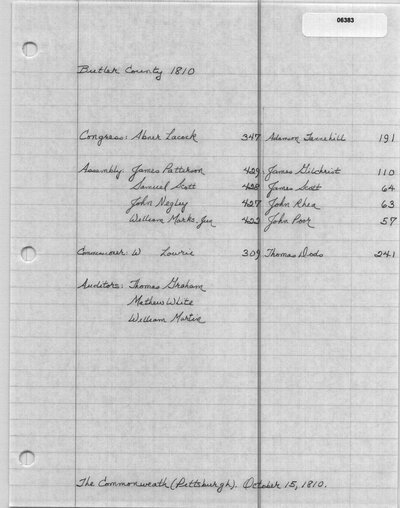 06383
Butler County 1810
Congress: Abner Lacock 347 Adamson Tannehill 191
Assembly: James Patterson 429 James Gilchrist 110
Samuel Scott 428 James Scott 64
John Negley 427 John Rhea 63
William Marks, Jun 422 John Poor 57
Commissioner W Lowrie 309 Thomas Dods 241
Auditors: Thomas Graham
Mathew White
William Martin
The Commonweath (Pittsburgh). October 15, 1810.